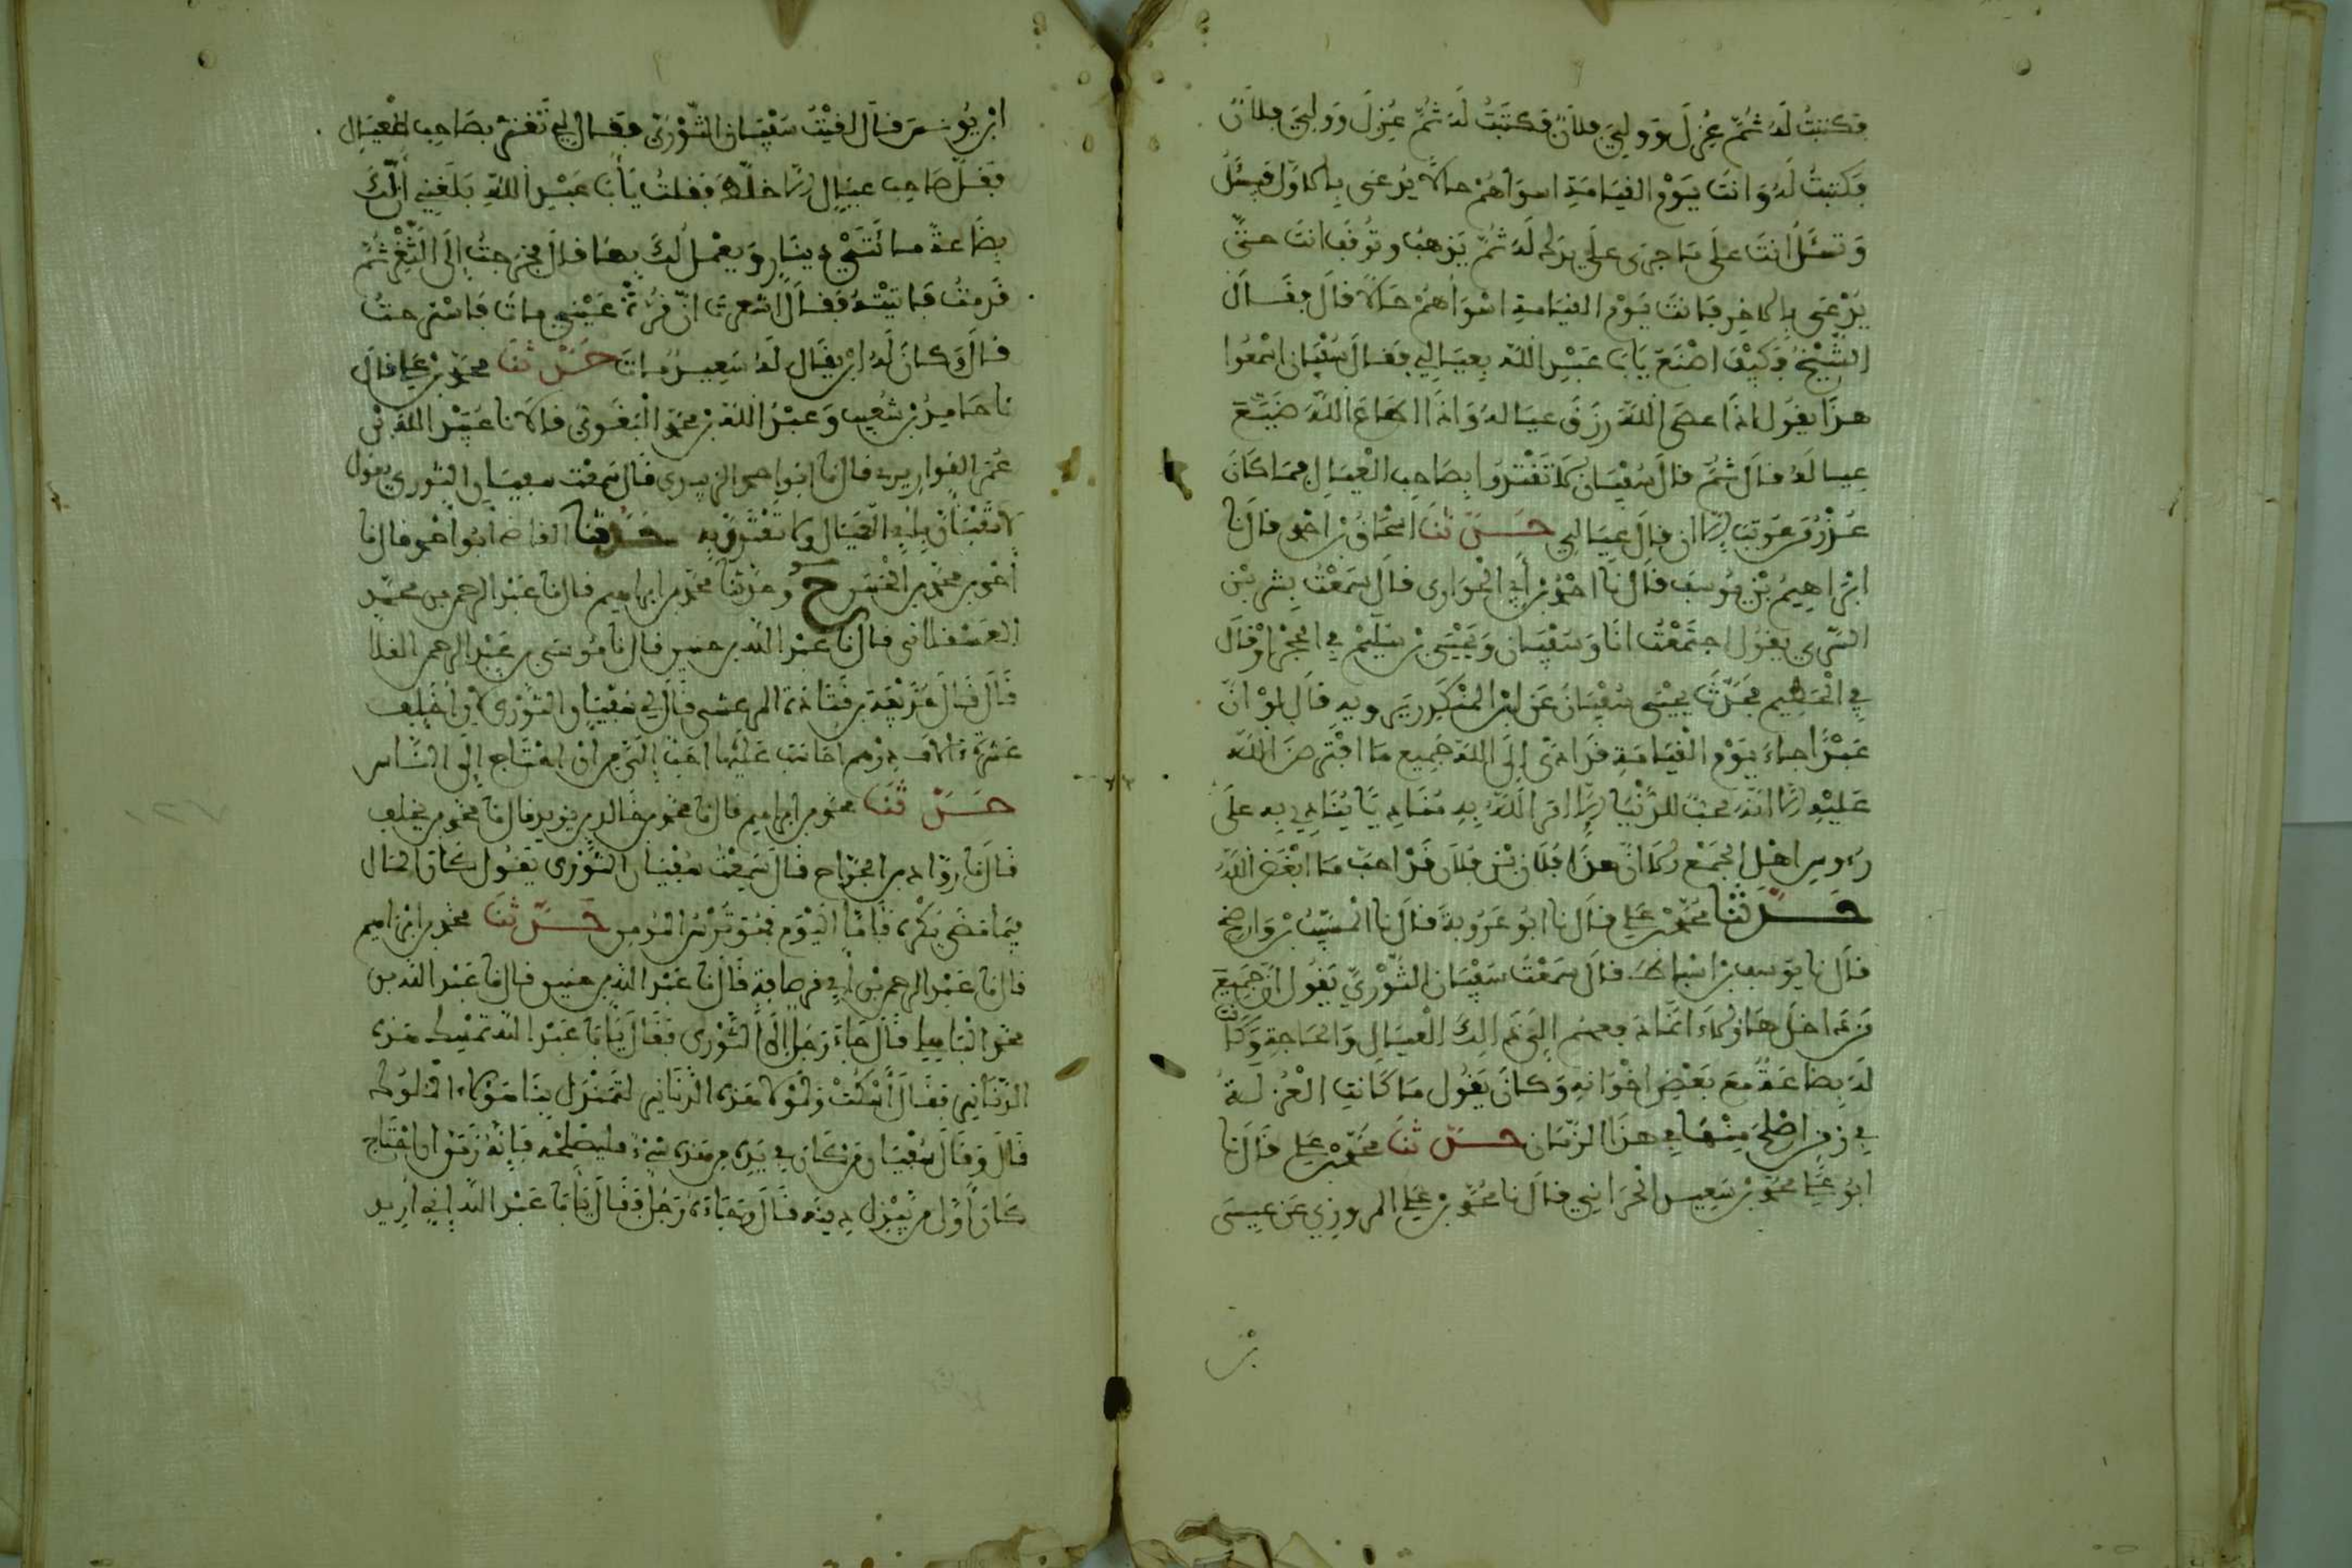 فكتبتُ لَهُ ثُمَّ عُزِلَ وَوَلِيَ فلانٌ فكتَبْتُ لَهُ ثُمَّ عُزِلَ وَوَلِيَ فلانٌ
فكتبتُ لَهُ وَانتَ يَوْم القيَامَةِ اسوَاهُمْ حالاً يُدعى بالاوّل فيسْئَلُ
وَتسْئَلُ انتَ عَلَى مَا جرى على يدك لَهُ ثُمَّ يَذهبُ وتُوقف انتَ حتَّى
يُدْعَى بالاخِر فانتَ يَوْم القيَامةِ اسْوَاهُمْ حَالاً قالَ فقَالَ
الشَّيْخُ فكَيْفَ اصْنَعُ يَابَا عَبْدِ اللَّه بِعِيَالِي فقالَ سُفْيَان اسْمَعُوا
هذَا يقول اذَا عصَى اللَّهَ رزقَ عيَالهُ وَاذَا اطَاعَ اللَّهَ ضَيَّعَ
عيالَهُ قالَ ثُمَّ قالَ سُفْيَان لا تَقْتَدُوا بصَاحِب الْعيَالِ فما كَانَ
عُذْرُ مَن عُوتبَ إلا ان قالَ عيَالِي حَدَّثنَا اسْحَاقُ بْن احمد قالَ نا
ابْرَاهِيمُ بْن يُوسف قالَ نَا احْمَدُ بْن أبي الْحَوَارى قالَ سَمعْتُ بِشر بْن
السَّرِي يقُول اجتَمعْتُ انَا وَسُفْيَان وَيَحْيَى بْن سُلَيْم في الْحِجْرِ اوْ قَالَ
في الْحَطِيمِ فحَدَّثَ يحْيَى سُفْيَانَ عَن ابْن المنْكَدِر يَرويه قالَ لوْ انَّ
عَبْدًا جاءَ يَوْم الْقيَامَةِ قَدْ ادَّى إلَى اللَّه جَمِيع مَا افْتَرَضَ اللَّه
عَلَيْهِ إلا انَّهُ محبٌّ للدُّنْيَا إلا امَر اللَّهُ بِهِ مُنَاديًا يُنَادِي بِهِ علَى
رءوس اهْل الجَمْع الا انَّ هذَا فُلَان بْن فلان قَدْ احبَّ مَا ابْغَضَ اللَّهُ
حَدَّثنَا مُحَمَّدُ بْن عَلي قالَ نا ابُو عَرُوبةَ قالَ نا الْمُسَيَّبُ بْن وَاضِح
قالَ نا يوسف بْن اسْبَاط قالَ سَمعْتُ سُفْيَان الثَّوْرِيَّ يَقُول انَّ جَمِيعَ
مَن داخل هَاؤلاء انَّما دفعهُم إلَى ذَلِكَ الْعِيَال وَالحَاجة وَكَانَتْ
لَهُ بِضَاعَةٌ معَ بَعْضِ اخْوَانهِ وَكانَ يَقُول مَا كَانتِ الْعُزلَةُ
في زمنٍ اصْلحَ مِنْهَا في هذَا الزَّمَان حَدَّثنَا مُحَمَّدُ بْن عَلي قَالَ نا
ابُو عَلي مُحَمَّدُ بْن سَعِيد الْحَرَّاني قالَ نا مُحَمَّدُ بْن عَلي المروزِي عَن عيسَى
بْن
ابْن يُونسَ قالَ لقيْتُ سُفْيَانَ الثَّوْرىَّ فقالَ لِي تَغترّ بصَاحِب الْعيَالِ
فقلَّ صَاحِب عيَال إلا خلّط فقلتُ يَأبَا عَبْدِ اللَّهِ بَلغَنِي أنَّ لكَ
بِضَاعَةً مائتَيْ دينَارٍ وَيعْمل لكَ بهَا قالَ فخرجتُ إلَى الثَّغْر ثُمَّ
قدمتُ فاتيْتهُ فقالَ اشعرتَ انَّ قُرَّةَ عَيْني ماتَ فَاسْترحتُ
قالَ وَكانَ لَهُ ابْن يُقَال لَهُ سَعِيد مَاتَ حَدَّثنَا محَمَّد بْن عَلي قالَ
نا حَامِدُ بْن شُعَيب وَعَبْدُ اللَّه بْن محَمَّد الْبَغَوِيُّ قالاَ نا عُبَيْد اللَّه بْن
عُمَرَ القوارِيري قالَ نا ابُو احمد الزبيري قالَ سَمعْت سفيان الثوري يقول
لا تعْبَأنَّ بأبي الْعِيَال ولا تغْترنّ به حَدَّثنَا القاضي ابُو احْمد قالَ نا
أحمد بن محمَّد بن الْحَسَن ح وحدَّثنا محَمَّد بن ابراهيم قالَ نا عَبْد الرحمن بن محمَّد
العَسْقلاني قالَ نا عَبْد اللَّه بن خبيق قالَ نا مُوسَى بن عَبْد الرحمن القلا
قالَ قالَ حُذَيْفَة بن قتَادَة المرعشي قالَ لي سُفْيَان الثَّوْرى لأن أُخَلِّف
عَشرَة ءَالاف درهم احَاسَب عَلَيْهَا احَبُّ إلَيَّ من انْ احْتَاج إلَى النَّاس
حَدَّثنَا محَمَّد بن ابراهيم قالَ نا محَمَّد بن خالد بن يزيد قالَ نا محَمَّد بن خلف
قالَ نا روّاد بن الجَرَّاح قالَ سَمِعْتُ سُفْيَان الثَّوْرى يَقُول كَانَ المال
فيمَا مَضَى يُكْرَه فَأمَّا الْيَوْم فهُوَ تُرْسُ المُومن حَدَّثنَا محَمَّد بن ابْرَاهيم
قالَ نا عَبْد الرحمن بْن أبي قرصافة قالَ نا عَبْد اللَّه بن خبيق قالَ نا عَبْد اللَّه بن
محَمَّد الباهلي قالَ جَاءَ رَجُل إلَى الثَّوْرى فقالَ يَابَا عَبْد اللَّه تمْسِك هَذه
الدَّنَانِير فقالَ اسْكُتْ فَلَوْلا هَذِه الدَّنَانِير لَتَمَنْدَلَ بِنَا هَؤلاءِ الْمُلوك
قالَ وَقالَ سُفْيَان مَن كَانَ في يَدِه من هَذه شَيْءٌ فليصْلِحْه فَإنَّه زَمَن ان احْتَاج
كَانَ أوَّل من يُبْذل دينه قالَ وَجَاءَهُ رَجُلٌ فقَالَ يَابَا عَبْد اللَّه إنِّي أُرِيد